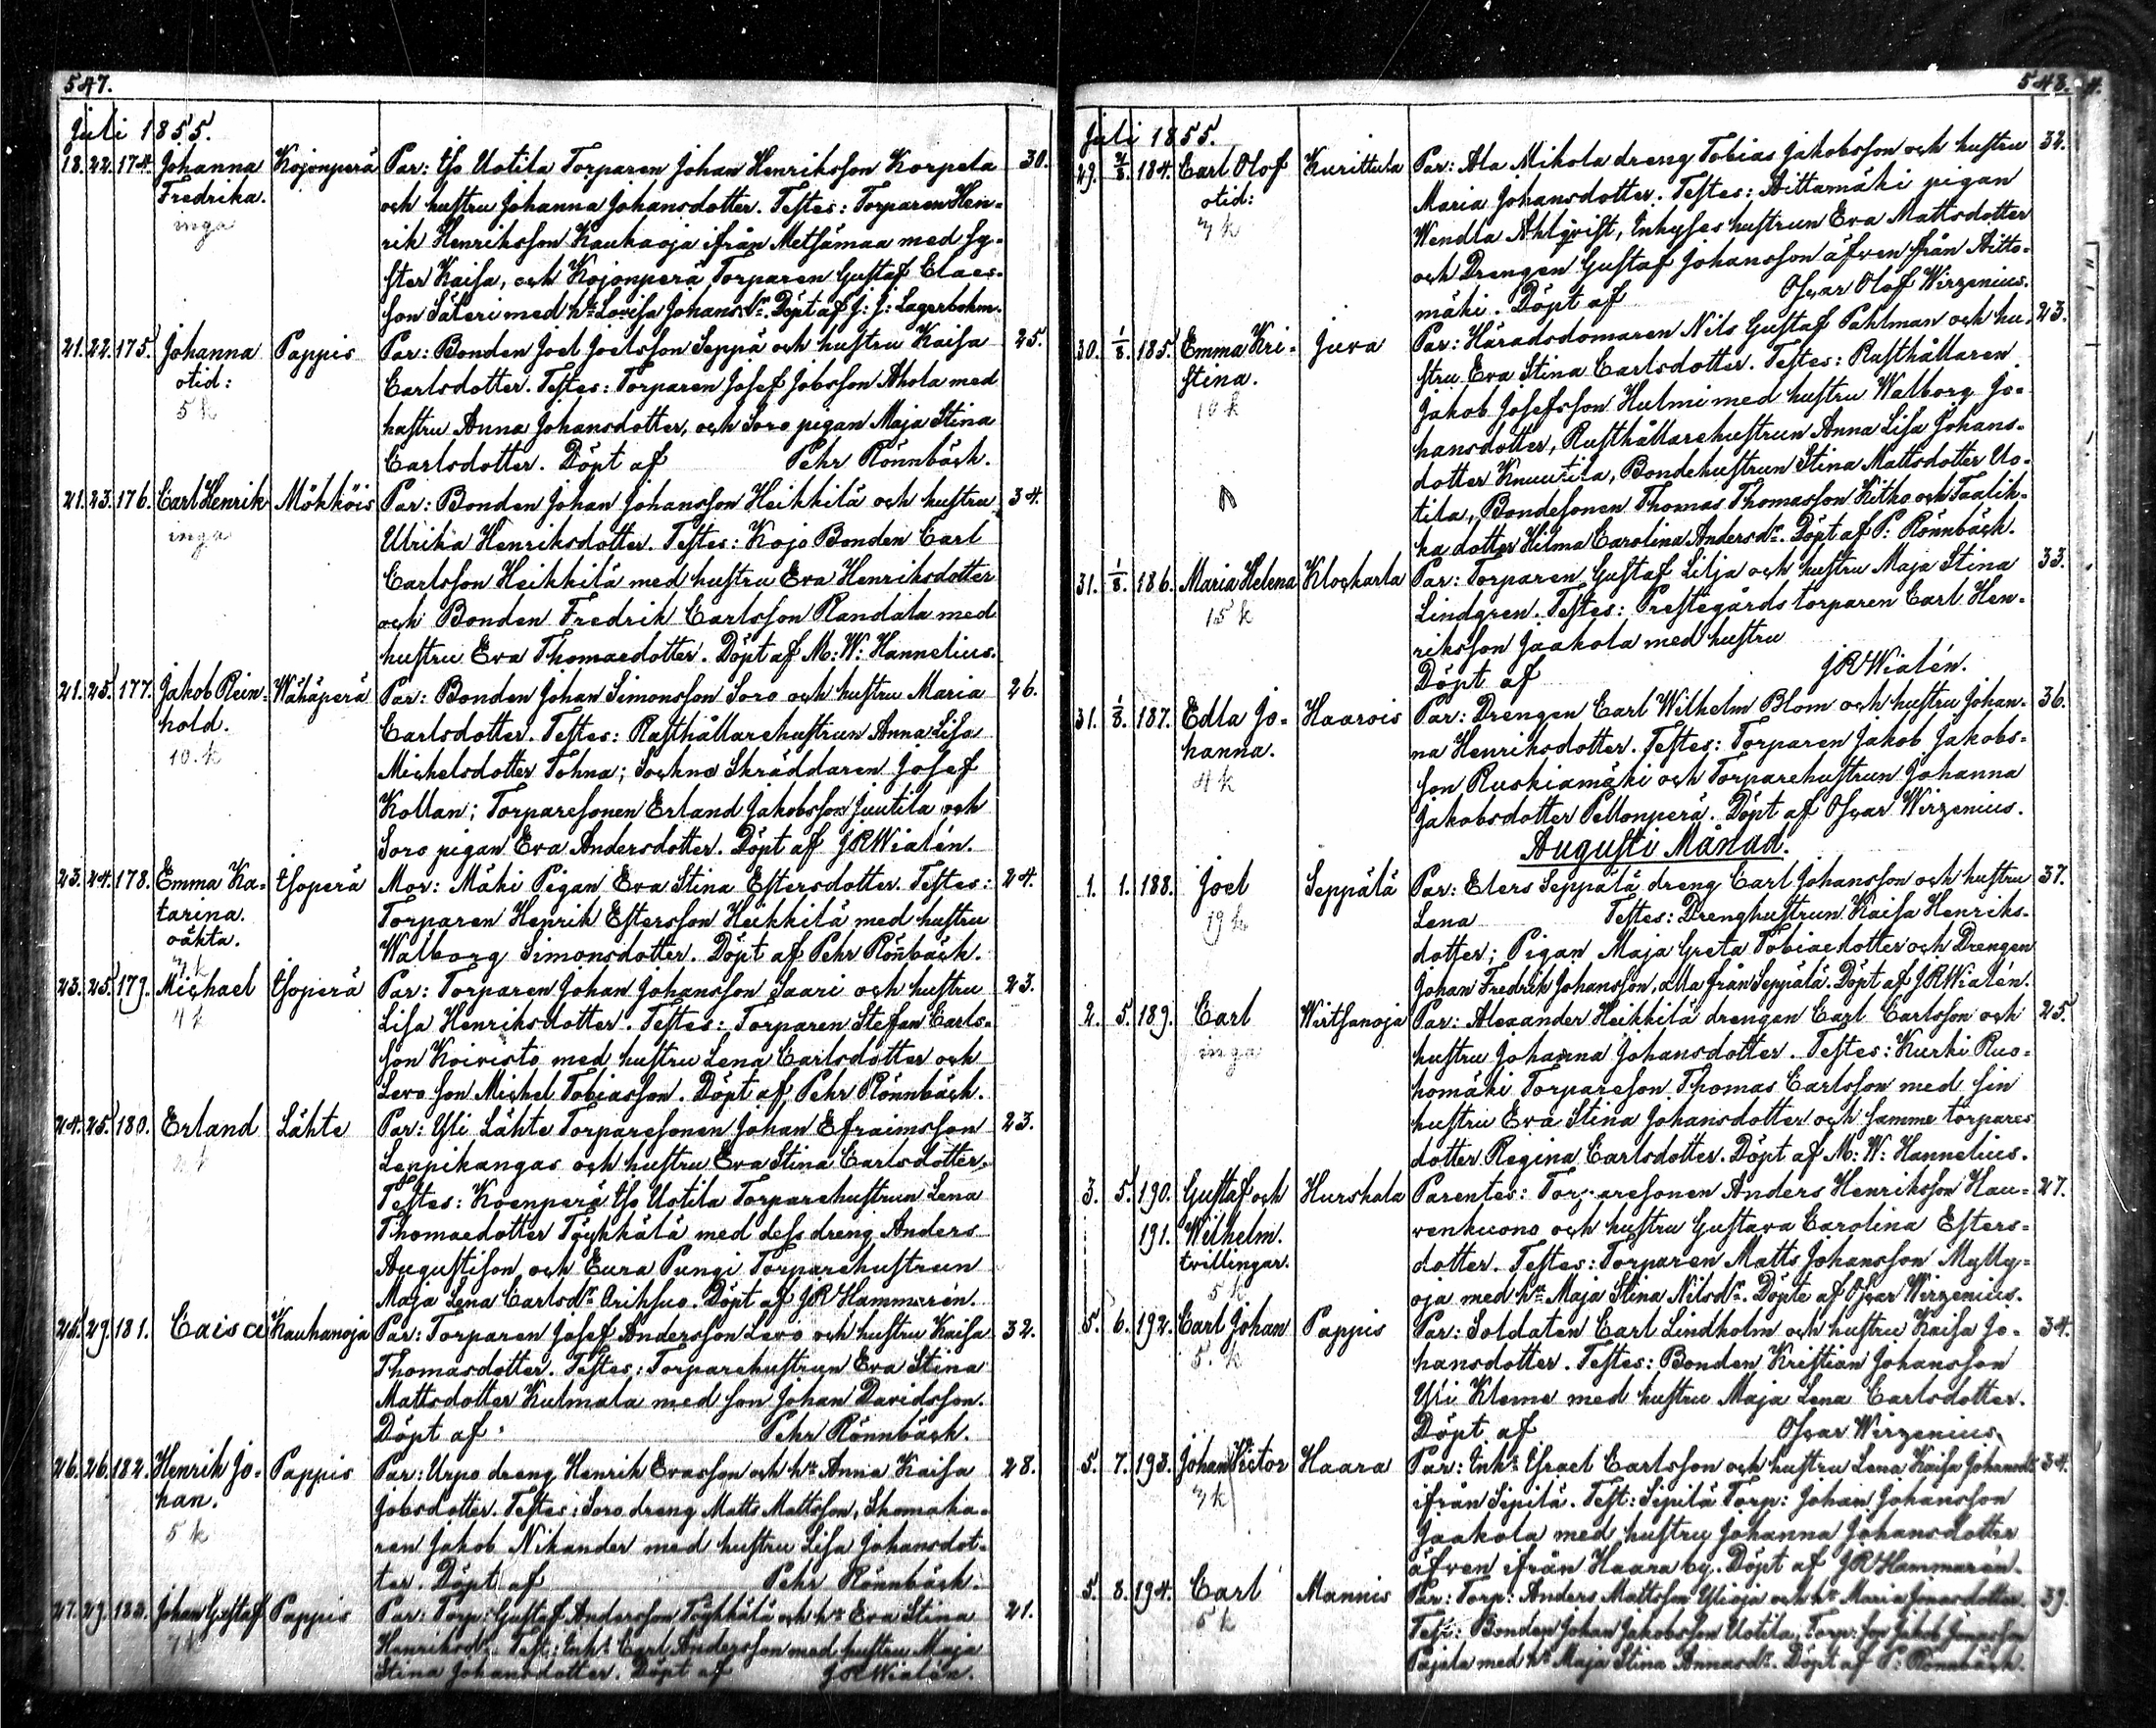 547.
Juli 1855.
18. 22. 174. Johanna Kojonperä Par: Iso Uotila Torparen Johan Henriksson Korpela 30.
Fredrika. och hustru Johanna Johansdotter. Testes: Torparen Hen-
inga rik Henriksson Kaukaoja ifrån Metsämaa med sy-
ster Kaisa, och Kojonperä Torparen Gustaf Claes-
son Säteri med hu Lovisa Johansdr. Döpt af J: J: Lagerbohm.
21. 22. 175. Johanna Pappis Par: Bonden Joel Joelsson Seppä och hustru Kaisa 25.
otid: Carlsdotter. Testes: Torparen Josef Jobsson Ahola med
5 k hustru Anna Johansdotter, och Soro pigan Maja Stina
Carlsdotter. Döpt af Pehr Rönnbäck.
21. 23. 176. Carl Henrik Mökköis Par: Bonden Johan Johansson Heikkilä och hustru 34.
inga Ulrika Henriksdotter. Testes: Kojo Bonden Carl
Carlsson Heikkilä med hustru Eva Henriksdotter
och Bonden Fredrik Carlsson Randala med
hustru Eva Thomaedotter. Döpt af M: W: Hannelius.
21. 25. 177. Jakob Rein- Wähäperä Par: Bonden Johan Simonsson Soro och hustru Maria 26.
hold. Carlsdotter. Testes: Rusthållarehustrun Anna Lisa
10. k Michelsdotter Tohna; Sockne Skräddaren Josef
Kollan; Torparesonen Erland Jakobsson Juutila och
Soro pigan Eva Andersdotter. Döpt af JRWialén.
23. 24. 178. Emma Ka- Isoperä Mor: Mäki Pigan Eva Stina Estersdotter. Testes: 24.
tarina. Torparen Henrik Estersson Heikkilä med hustru
oäkta. Walborg Simonsdotter. Döpt af Pehr Rönnbäck.
7 k
23. 25. 179. Michael Isoperä Par: Torparen Johan Johansson Saari och hustru 23.
4 k Lisa Henriksdotter. Testes: Torparen Stefan Carls-
son Koivisto med hustru Lena Carlsdotter och
Levo son Michel Tobiasson. Döpt af Pehr Rönnbäck.
24. 25. 180. Erland Lähte Par: Yli Lähte Torparesonen Johan Efraimsson 23.
Leppikangas och hustru Eva Stina Carlsdotter.
Testes: Koenperä Iso Uotila Torparehustrun Lena
Thomaedotter Töykkälä med dess dreng Anders
Augustison och Eura Pungi Torparehustrun
Maja Lena Carlsdr Arihsuo. Döpt af JRHammarén.
25. 29. 181. Caisa Kauhanoja Par: Torparen Josef Andersson Levo och hustru Kaisa 32.
Thomasdotter. Testes: Torparehustrun Eva Stina
Mattsdotter Kulmala med son Johan Davidsson.
Döpt af Pehr Rönnbäck.
26. 26. 182. Henrik Jo- Pappis Par: Urpo dreng Henrik Evasson och hu Anna Kaisa 28.
han. Jobsdotter. Testes: Soro dreng Matts Mattsson, Skomaka-
5 k ren Jakob Nikander med hustru Lisa Johansdot-
ter. Döpt af Pehr Rönnbäck.
27. 29. 183. Johan Gustaf Pappis Par: Torp: Gustaf Andersson Töykkälä och hu Eva Stina 21.
7 k Henriksdr. Test: Inh: Carl Andersson med hustru Maja
Stina Johansdotter. Döpt af JRWialén.
548.
Juli 1855.
29. 2/8. 184. Carl Olof Kurittula Par: Ala Mikola dreng Tobias Jakobsson och hustru 32.
otid: Maria Johansdotter. Testes: Aittamäki pigan
7 k Wendla Ahlqvist, Inhyses hustrun Eva Mattsdotter
och Drengen Gustaf Johansson äfven från Aitto-
mäki. Döpt af Oscar Olof Wirzenius.
30. 1/8. 185. Emma Kri- Juva Par: Häradsdomaren Nils Gustaf Pahlman och hu- 23.
stina. stru Eva Stina Carlsdotter. Testes: Rusthållaren
10 k Jakob Josefsson Hulmi med hustru Walborg Jo-
hansdotter, Rusthållarehustrun Anna Lisa Johans-
dotter Knuutila, Bondehustrun Stina Mattsdotter Uo-
tila, Bondesonen Thomas Thomasson Kitko och Taalik-
ka dotter Hilma Carolina Andersdr. Döpt af P: Rönnbäck.
31. 1/8. 186. Maria Helena Klockarla Par: Torparen Gustaf Lilja och hustru Maja Stina 33.
15 k Lindgren. Testes: Prestegårds torparen Carl Hen-
riksson Jaakola med hustru
Döpt af JRWialén.
31. 1/8. 187. Edla Jo- Haarois Par: Drengen Carl Wilhelm Blom och hustru Johan- 36.
hanna. na Henriksdotter. Testes: Torparen Jakob Jakobs-
4 k son Ruskiamäki och Torparehustrun Johanna
Jakobsdotter Peltonperä. Döpt af Oscar Wirzenius.
Augusti Månad.
1. 1. 188. Joel Seppälä Par: Elers Seppälä dreng Carl Johansson och hustru 37.
19 k Lena Testes: Drenghustrun Kaisa Henriks-
dotter; Pigan Maja Greta Tobiaedotter och Drengen
Johan Fredrik Johansson, alla från Seppälä. Döpt af JRWialén.
2. 5. 189. Carl Wirtsanoja Par: Alexander Heikkilä drengen Carl Carlsson och 25.
inga hustru Johanna Johansdotter. Testes: Kurki Ruo-
homäki Torpareson Thomas Carlsson med sin
hustru Eva Stina Johansdotter och samme torpares
dotter Regina Carlsdotter. Döpt af M: W: Hannelius.
3. 5. 190. Gustaf och Hurskala Parentes: Torparesonen Anders Henriksson Hau- 27.
191. Wilhelm. venkuono och hustru Gustava Carolina Esters-
tvillingar. dotter. Testes: Torparen Matts Johansson Mylly-
5 k oja med hu Maja Stina Nilsdr. Döpte af Oscar Wirzenius.
5. 6. 192. Carl Johan Pappis Par: Soldaten Carl Lindholm och hustru Kaisa Jo- 34.
5. k hansdotter. Testes: Bonden Kristian Johansson
Yli Kleme med hustru Maja Lena Carlsdotter.
Döpt af Oscar Wirzenius.
5. 7. 193. Johan Victor Haara Par: Inh: Israel Carlsson och hustru Lena Kaisa Johansdr 34.
7 k ifrån Sipilä. Test: Sipilä Torp: Johan Johansson
Jaakola med hustru Johanna Johansdotter
äfven ifrån Haara by. Döpt af JRHammarén.
5. 8. 194. Carl Mannis Par: Torp: Anders Mattsson Ylioja och hu Maria Jonasdotter. 39.
5 k Test: Bonden Johan Jakobsson Uotila, Torp: son Jakob Jonasson
Pajala med hu Maja Stina Annasdr. Döpt af P: Rönnbäck.